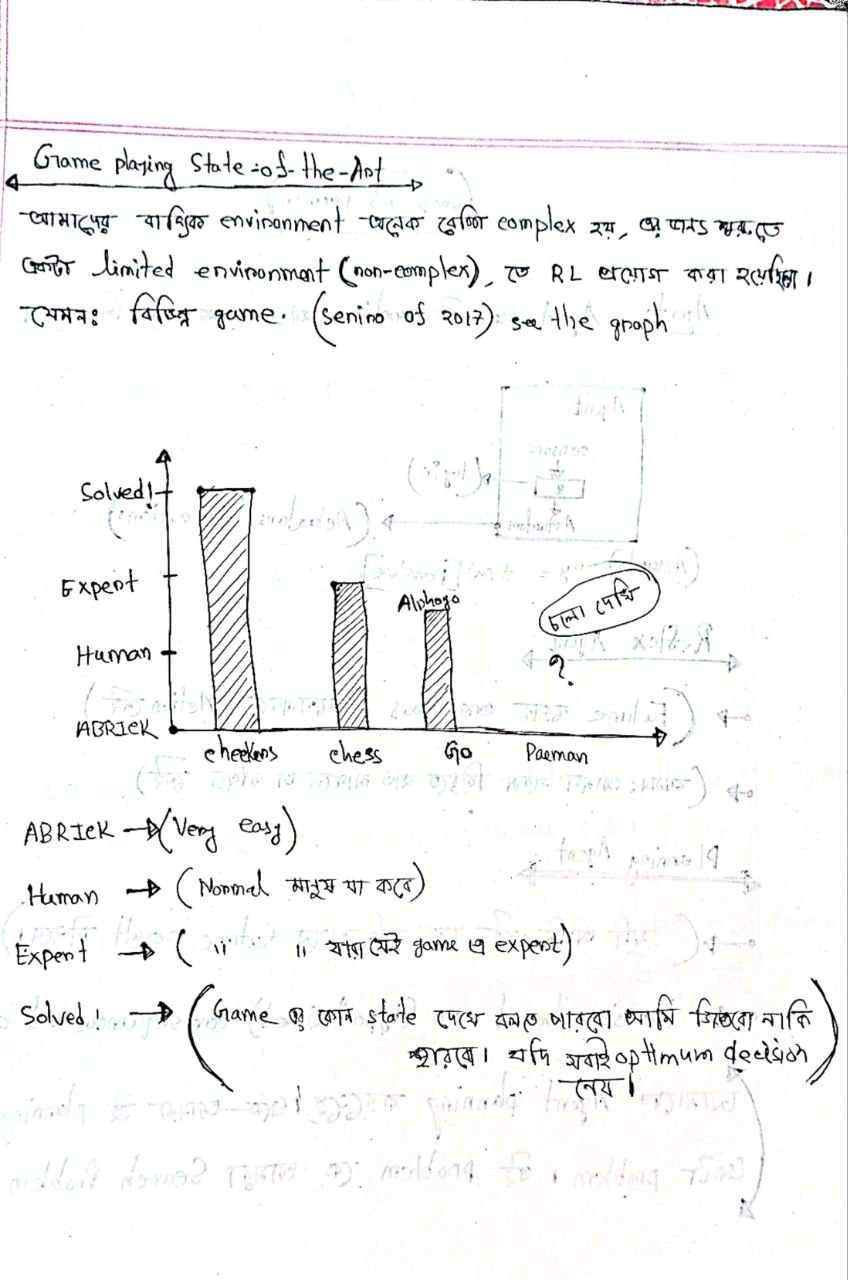 Game playing State-of-the-Art
আমাদের বাহ্যিক environment অনেক বেশি complex হয়, এর জন্য শুরুতে
একটা limited environment (non-complex), তে RL প্রয়োগ করা হয়েছিল।
যেমনঃ বিভিন্ন game. (senirio of 2017) see the graph
Solved!
Expert
Alphago
চলো দেখি
Human
?
ABRICK
checkers chess Go Pacman
ABRICK → (Very easy)
Human → (Normal মানুষ যা করে)
Expert → ( " " যারা সেই game এ expert)
Solved! → (Game এর কোন state দেখে বলতে পারবো আমি জিতবো নাকি
হারবো। যদি সবাই optimum decision
নেয়।)